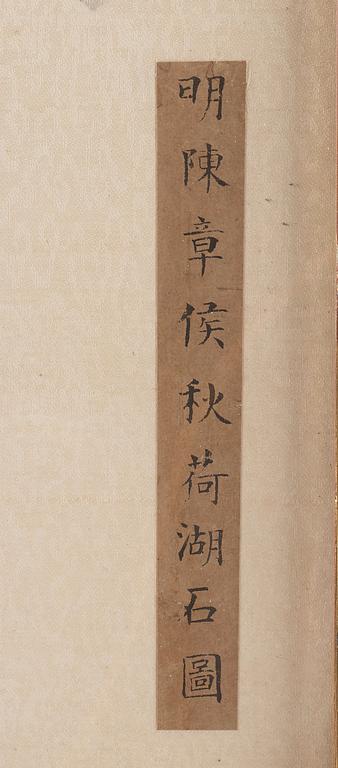 明陳章侯秋荷湖石圖